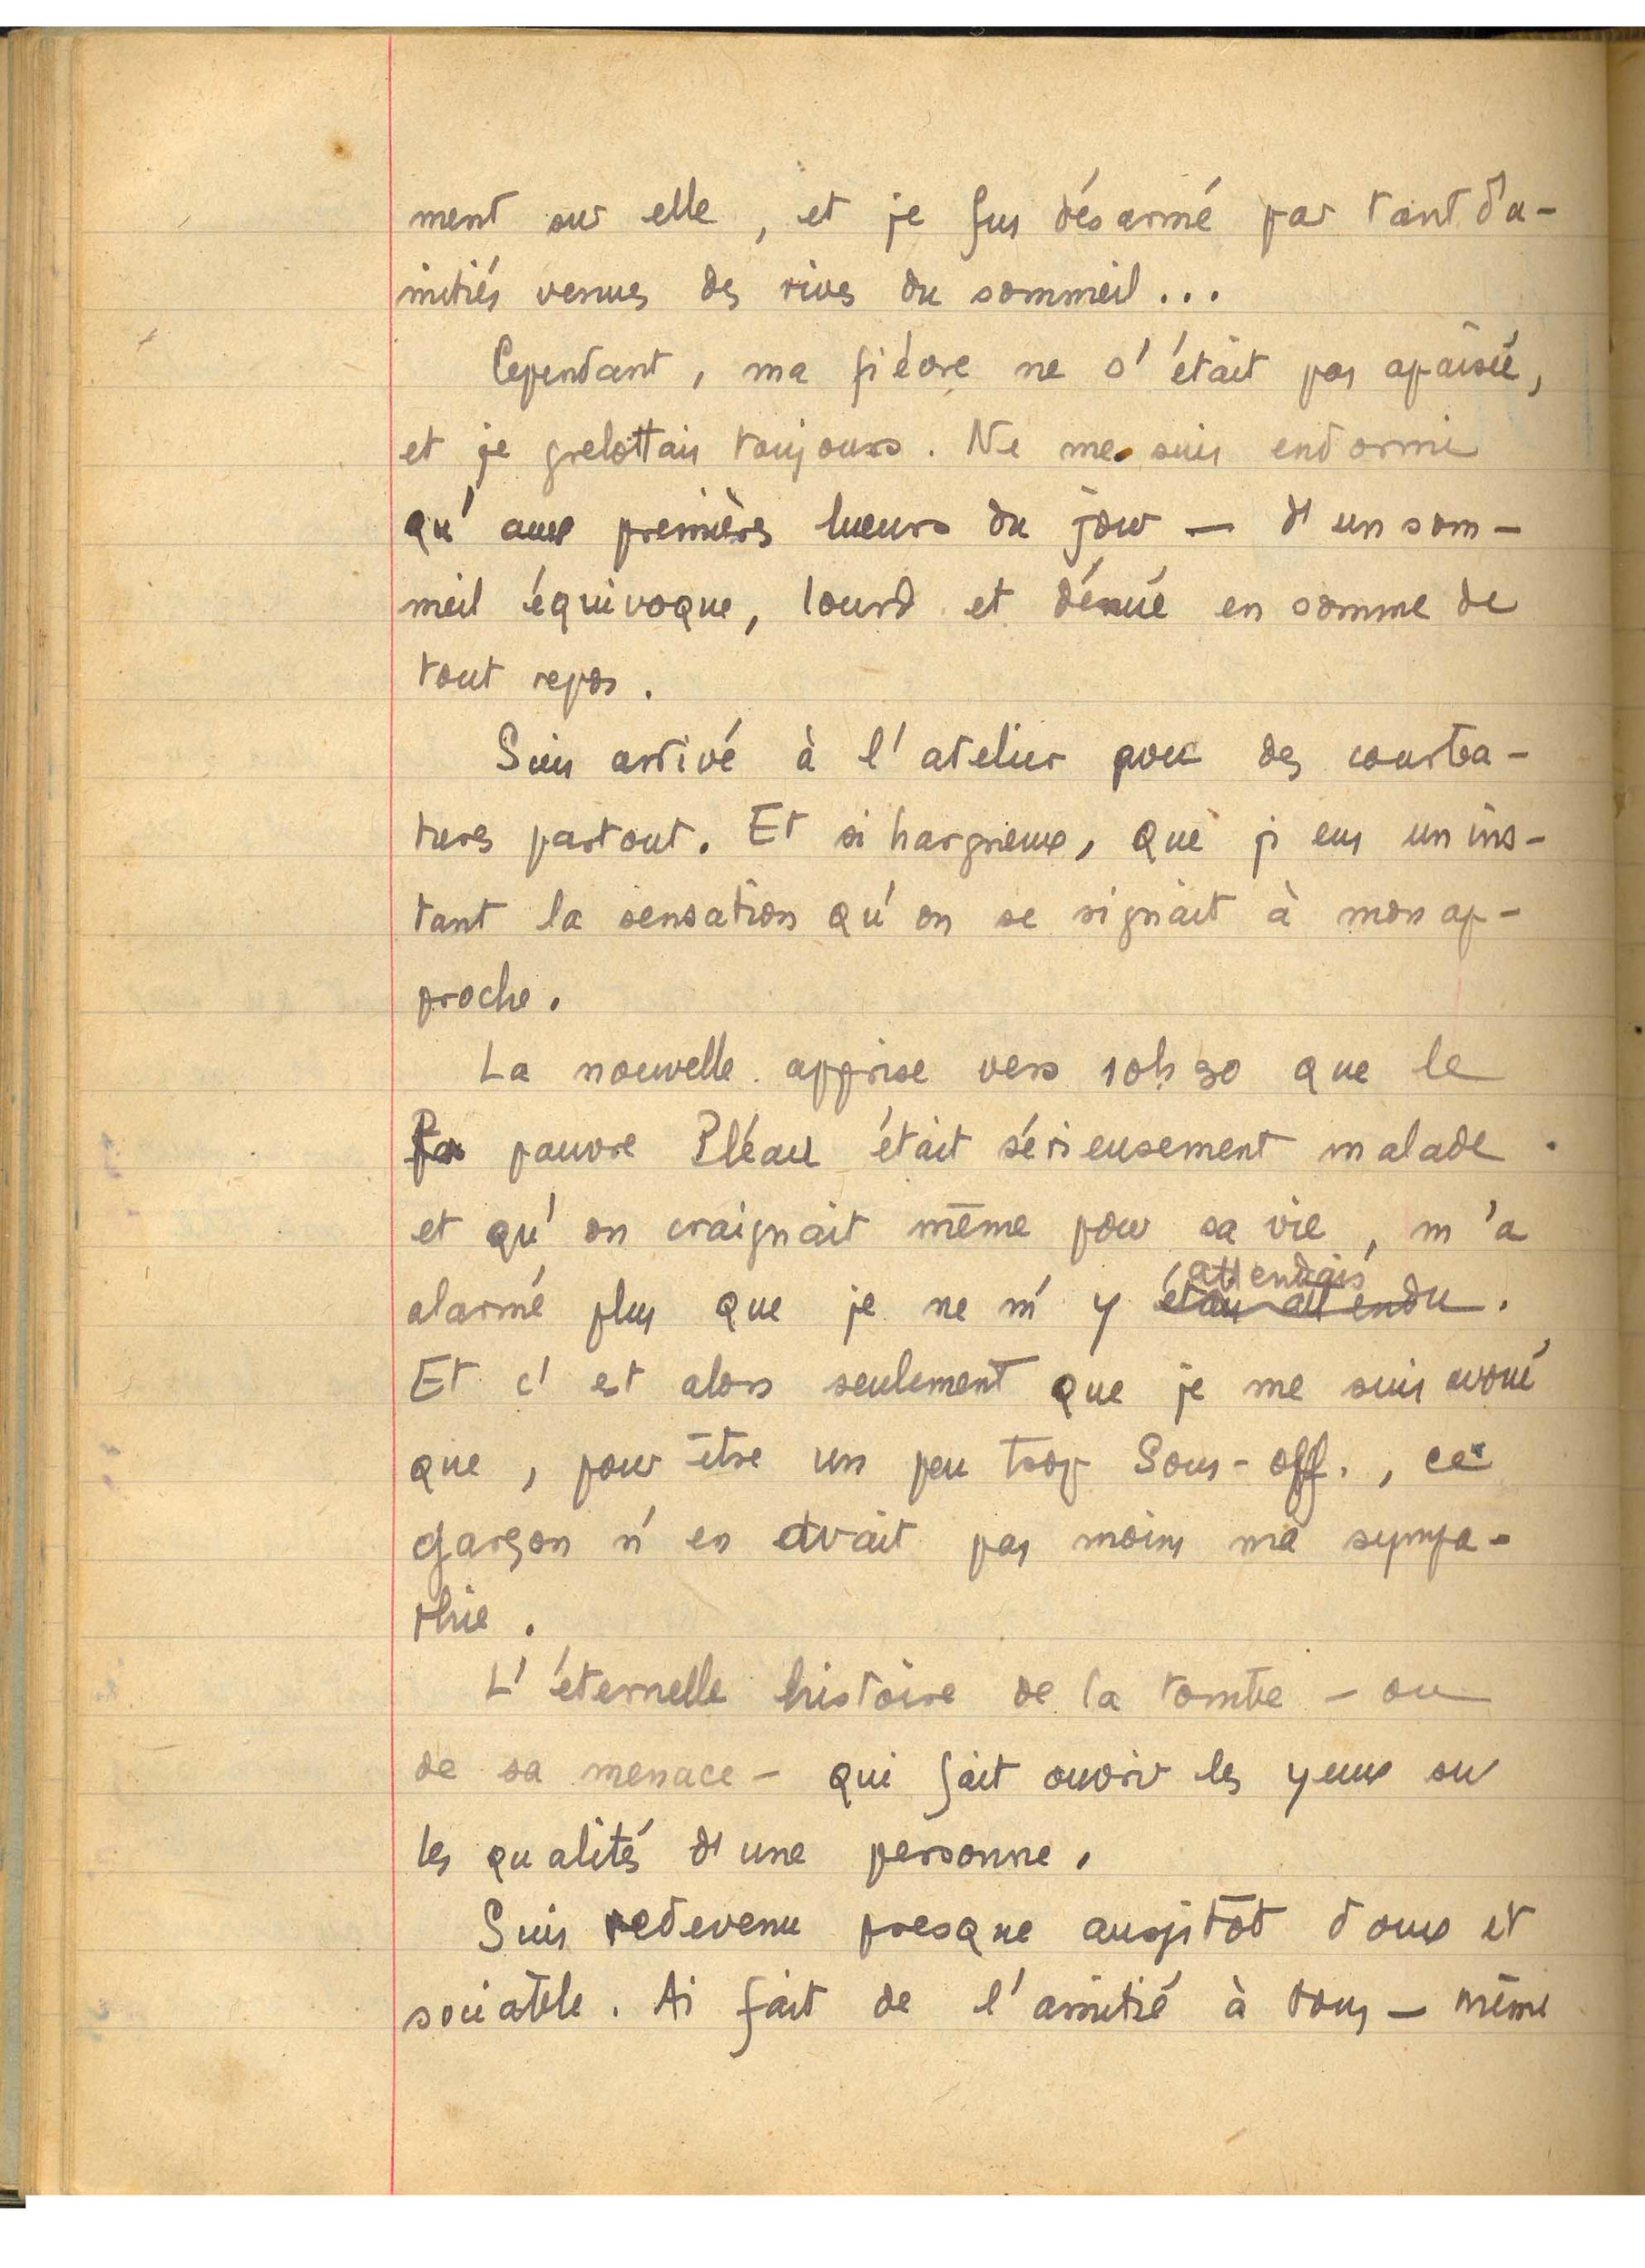 ment sur elle, et je fus désarmé par tant d'a-
mitiés venues des rives du sommeil...
Cependant, ma fièvre ne s'était pas apaisée,
et je grelottais toujours. Ne me suis endormi
qu'aux premières lueurs du jour — d'un som-
meil équivoque, lourd et dénué en somme de
tout repos.
Suis arrivé à l'atelier avec des courba-
tures partout. Et si hargneux, que j'eus un ins-
tant la sensation qu'on se signait à mon ap-
proche.
La nouvelle apprise vers 10h30 que le
pauvre Pléau était sérieusement malade
et qu'on craignait même pour sa vie, m'a
attendais
alarmé plus que je ne m'y étais attendu.
Et c'est alors seulement que je me suis avoué
que, pour être un peu trop Sous-off., ce
garçon n'en avait pas moins ma sympa-
thie.
L'éternelle histoire de la tombe — ou
de sa menace — qui fait ouvrir les yeux sur
les qualités d'une personne.
Suis redevenu presque aussitôt doux et
sociable. Ai fait de l'amitié à tous — même